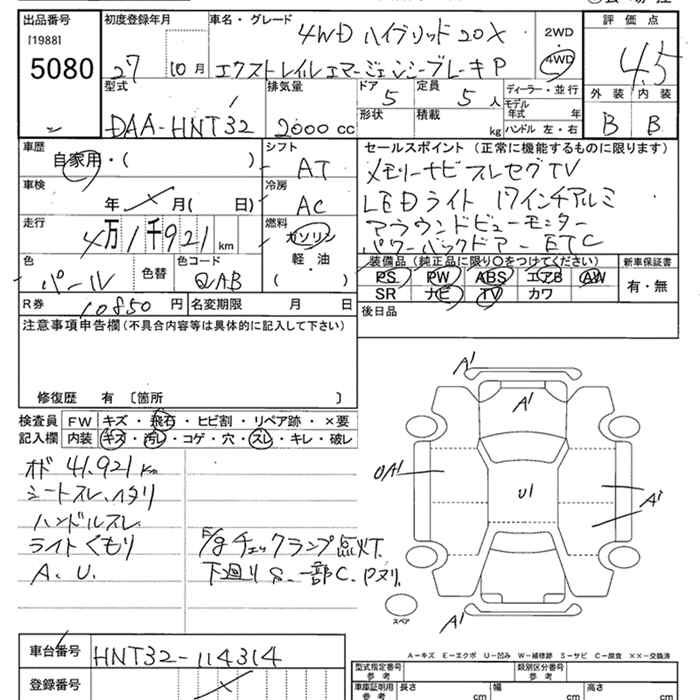 出品番号 初度登録年月 車名・グレード 評価点
[1988] 4WD ハイブリッド 20X 2WD 4.5
5080 27 10月 エクストレイルエマージェンシーブレーキP 4WD
型式 排気量 ドア 定員 ディーラー・並行 外装 内装
5 5人 モデル年式 年
DAA-HNT32 2000cc 形状 積載 kg ハンドル 左・右 B B
車歴 シフト セールスポイント (正常に機能するものに限ります)
自家用・( ) AT メモリーナビ フルセグTV
車検 冷房 LEDライト 17インチアルミ
年 月( 日) AC アラウンドビューモニター
走行 燃料 パワーバックドア ETC
4万1千921km ガソリン
色 色替 色コード 軽・油 装備品 (純正品に限り○をつけてください) 新車保証書
パール QAB ( ) PS PW ABS エアB AW 有・無
SR ナビ TV カワ
R券 10850円 名変期限 月 日 後日品
注意事項申告欄 (不具合内容等は具体的に記入して下さい)
修復歴 有 [箇所 ]
検査員 FW キズ・飛石・ヒビ割・リペア跡・×要
記入欄 内装 キズ・汚レ・コゲ・穴・スレ・キレ・破レ
オド 41.921km
シートスレ、ヘタリ
ハンドルスレ
ライトくもり E/gチェックランプ点灯.
A.U. 下廻りS.一部C.P又リ.
A'
A'
UA'
U1
A'
A'
スペア
A-キズ E-エクボ U-凹み W-補修跡 S-サビ C-腐食 ××-交換済
車台番号 HNT32-114314 型式指定番号 参考 類別区分番号 参考
登録番号 車庫証明用 参考 長さ cm 幅 cm 高さ cm